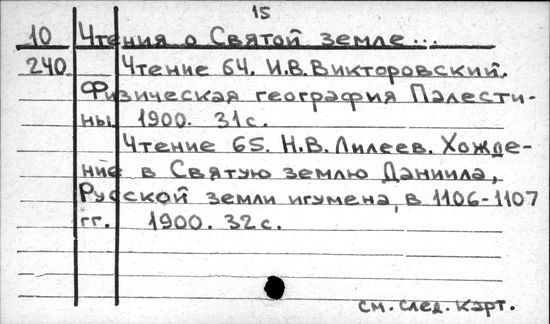 15
10 Чтения о Святой земле...
240 Чтение 64. И.В.Викторовский.
Физическая география Палести-
ны. 1900. 31с.
Чтение 65. Н.В.Лилеев. Хожде-
ние в Святую землю Даниила,
Русской земли игумена, в 1106-1107
гг. 1900. 32с.
см. след. карт.